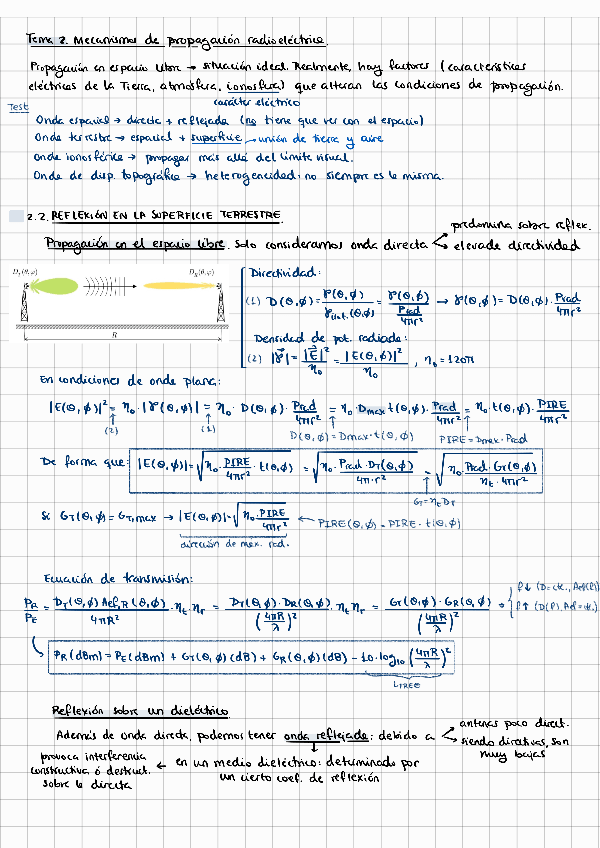 Tema 2. Mecanismos de propagación radioeléctrico.
Propagación en espacio libre → situación ideal. Realmente, hay factores (características
eléctricas de la Tierra, atmósfera, ionosfera) que alteran las condiciones de propagación.
carácter eléctrico
Test
Onda espacial → directa + reflejada (no tiene que ver con el espacio)
Onda terrestre → espacial + superficie → unión de tierra y aire
Onda ionosférica → propagar más allá del límite visual.
Onda de disp. topográfica → heterogeneidad: no siempre es la misma.
2.2. REFLEXIÓN EN LA SUPERFICIE TERRESTRE.
Propagación en el espacio libre. Solo consideramos onda directa
predomina sobre reflex.
elevada directividad
D_T(θ,φ) D_R(θ,φ)
R
Directividad:
(1) D(θ,ϕ) = 𝒫(θ,ϕ) / 𝒫isot.(θ,ϕ) = 𝒫(θ,ϕ) / (Prad / 4πr²) → 𝒫(θ,ϕ) = D(θ,ϕ) · Prad / 4πr²
Densidad de pot. radiada:
(2) |𝒫| = |E|² / η₀ = |E(θ,ϕ)|² / η₀ , η₀ = 120π
En condiciones de onda plana:
|E(θ,ϕ)|² = η₀ · |𝒫(θ,ϕ)| = η₀ · D(θ,ϕ) · Prad / 4πr² = η₀ · Dmax t(θ,ϕ) · Prad / 4πr² = η₀ · t(θ,ϕ) · PIRE / 4πr²
(2) (1) D(θ,ϕ) = Dmax · t(θ,ϕ) PIRE = Dmax · Prad
De forma que: |E(θ,ϕ)| = √(η₀ · PIRE / 4πr² · t(θ,ϕ)) = √(η₀ · Prad · D_T(θ,ϕ) / 4π·r²) = √(η₀ · Prad · G_T(θ,ϕ) / η_t · 4πr²)
G_T = η_t D_T
Si G_T(θ,ϕ) = G_T,max → |E(θ,ϕ)| = √(η₀ · PIRE / 4πr²) ← PIRE(θ,ϕ) = PIRE · t(θ,ϕ)
dirección de max. rad.
Ecuación de transmisión:
P_R / P_E = D_T(θ,ϕ) Aef,R(θ,ϕ) / 4πR² · η_t η_r = D_T(θ,ϕ) · D_R(θ,ϕ) / (4πR / λ)² η_t η_r = G_T(θ,ϕ) · G_R(θ,ϕ) / (4πR / λ)² →
f↓ (D = cte., Aef(f))
f↑ (D(f), Aef = cte.)
P_R(dBm) = P_E(dBm) + G_T(θ,ϕ)(dB) + G_R(θ,ϕ)(dB) − 10·log₁₀ (4πR / λ)²
Reflexión sobre un dieléctrico.
Además de onda directa, podemos tener onda reflejada: debido a
antenas poco direct.
siendo directivas, son
muy bajas
en un medio dieléctrico: determinado por
un cierto coef. de reflexión
provoca interferencia
constructiva ó destruct.
sobre la directa